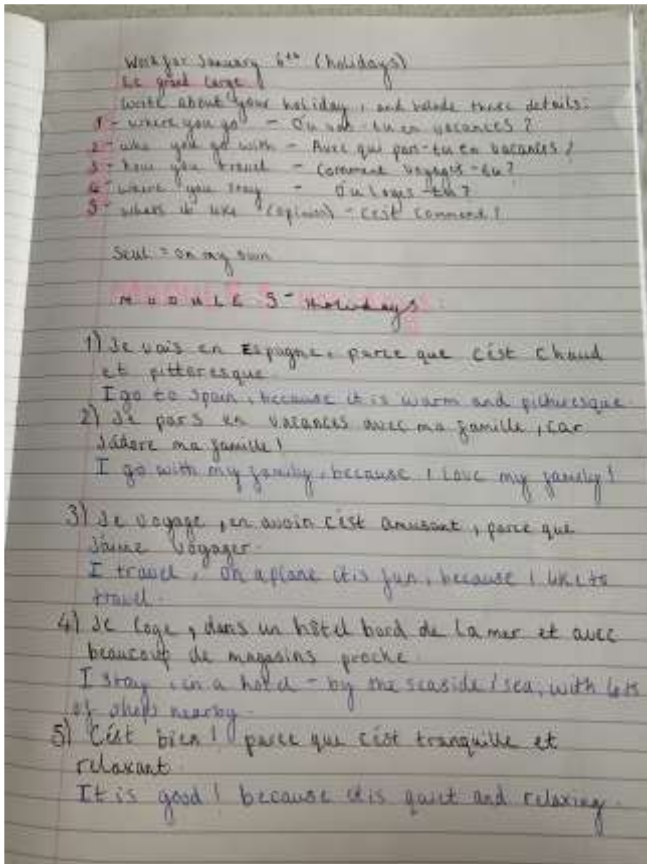 Work for January 6th (holidays)
Le grand large
Write about your holiday, and include three details:
1 - where you go - Où vas-tu en vacances?
2 - who you go with - Avec qui pars-tu en vacances?
3 - how you travel - Comment voyages-tu?
4 - where you stay - Où loges-tu?
5 - whats it like (opinion) - C'est comment?
Seul = on my own
MODULE 5 - Holidays
1) Je vais en Espagne, parce que c'est chaud
et pittoresque.
I go to Spain, because it is warm and picturesque.
2) Je pars en vacances avec ma famille, car
j'adore ma famille!
I go with my family, because I love my family!
3) Je voyage, en avoin c'est amusant, parce que
j'aime voyager.
I travel, on a plane it is fun, because I like to
travel.
4) Je loge, dans un hôtel bord de la mer et avec
beaucoup de magasins proche.
I stay, in a hotel - by the seaside / sea, with lots
of shops nearby.
5) C'est bien! parce que c'est tranquille et
relaxant.
It is good! because it is quiet and relaxing.